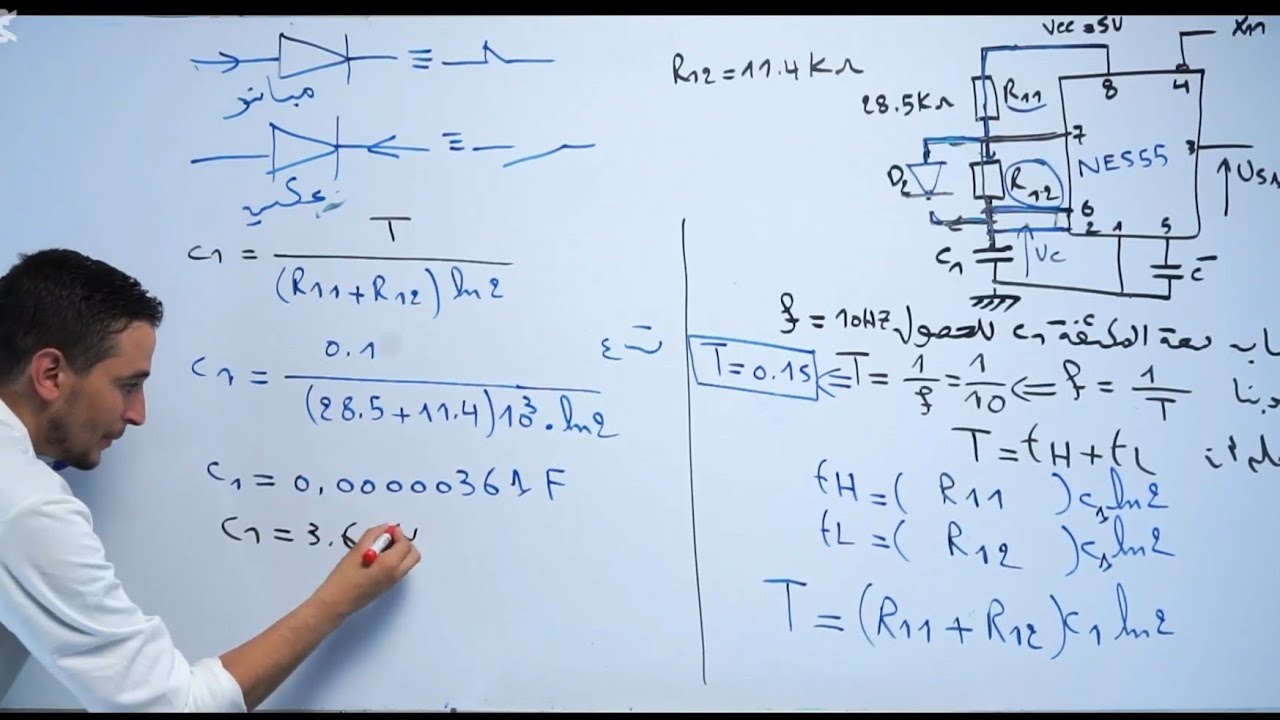 مباشر
عكسي
C1 = T / (R11 + R12) ln2
C1 = 0.1 / (28.5 + 11.4) 10^3 . ln2
C1 = 0,00000361 F
C1 = 3.6
R12 = 11.4 KΩ
Vcc = 5V
28.5KΩ
R11
8
4
7
NE555
3
D2
R12
6
2
1
5
C1
Vc
C
f = 10HZ للحصول C1 سعة المكثفة
T = 0.1s <= T = 1/f = 1/10 <= f = 1/T
T = tH + tL
tH = ( R11 ) C1 ln2
tL = ( R12 ) C1 ln2
T = (R11 + R12) C1 ln2